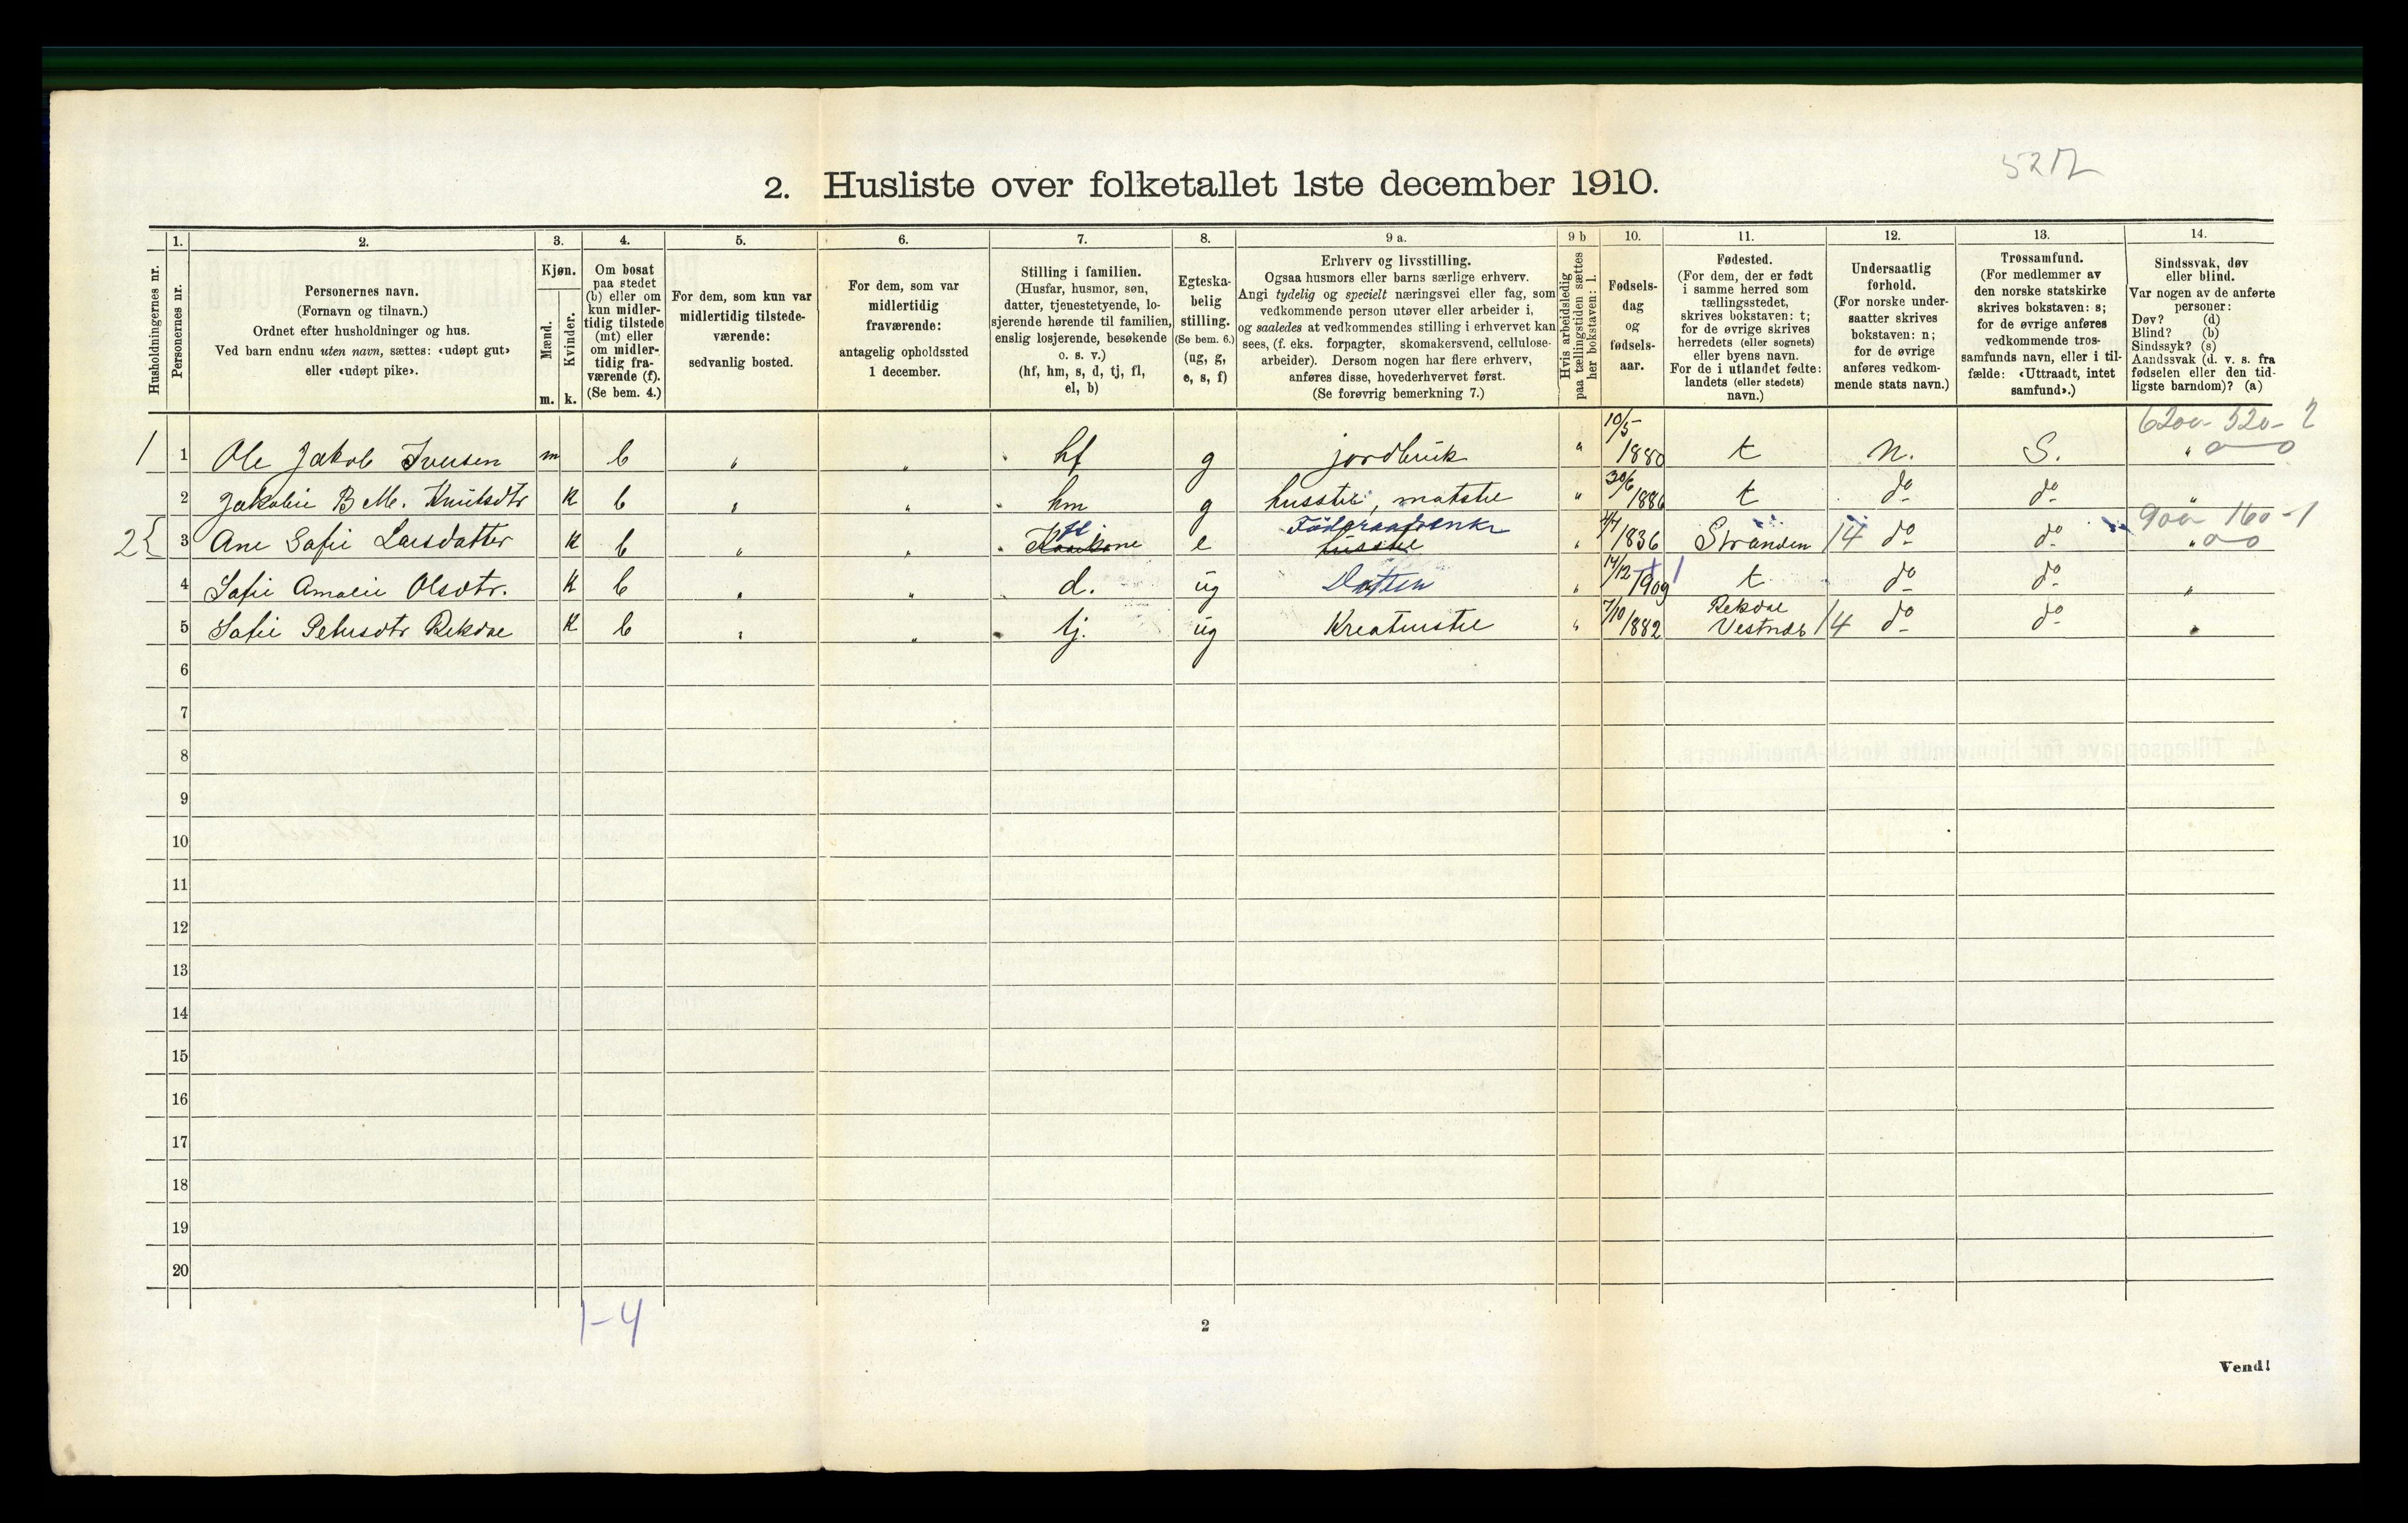 52 12
2. Husliste over folketallet 1ste december 1910.
1. 2. 3. 4. 5. 6. 7. 8. 9 a. 9 b 10. 11. 12. 13. 14.
Husholdningernes nr.
Personernes nr.
Personernes navn.
(Fornavn og tilnavn.)
Ordnet efter husholdninger og hus.
Ved barn endnu uten navn, sættes: «udøpt gut»
eller «udøpt pike».
Kjøn.
Mænd.
Kvinder.
m. k.
Om bosat
paa stedet
(b) eller om
kun midler-
tidig tilstede
(mt) eller
om midler-
tidig fra-
værende (f).
(Se bem. 4.)
For dem, som kun var
midlertidig tilstede-
værende:
sedvanlig bosted.
For dem, som var
midlertidig
fraværende:
antagelig opholdssted
1 december.
Stilling i familien.
(Husfar, husmor, søn,
datter, tjenestetyende, lo-
sjerende hørende til familien,
enslig losjerende, besøkende
o. s. v.)
(hf, hm, s, d, tj, fl,
el, b)
Egteska-
belig
stilling.
(Se bem. 6.)
(ug, g,
e, s, f)
Erhverv og livsstilling.
Ogsaa husmors eller barns særlige erhverv.
Angi tydelig og specielt næringsvei eller fag, som
vedkommende person utøver eller arbeider i,
og saaledes at vedkommendes stilling i erhvervet kan
sees, (f. eks. forpagter, skomakersvend, cellulose-
arbeider). Dersom nogen har flere erhverv,
anføres disse, hovederhvervet først.
(Se forøvrig bemerkning 7.)
Hvis arbeidsledig
paa tællingstiden sættes
her bokstaven: l.
Fødsels-
dag
og
fødsels-
aar.
Fødested.
(For dem, der er født
i samme herred som
tællingsstedet,
skrives bokstaven: t;
for de øvrige skrives
herredets (eller sognets)
eller byens navn.
For de i utlandet fødte:
landets (eller stedets)
navn.)
Undersaatlig
forhold.
(For norske under-
saatter skrives
bokstaven: n;
for de øvrige
anføres vedkom-
mende stats navn.)
Trossamfund.
(For medlemmer av
den norske statskirke
skrives bokstaven: s;
for de øvrige anføres
vedkommende tros-
samfunds navn, eller i til-
fælde: «Uttraadt, intet
samfund».)
Sindssvak, døv
eller blind.
Var nogen av de anførte
personer:
Døv? (d)
Blind? (b)
Sindssyk? (s)
Aandssvak (d. v. s. fra
fødselen eller den tid-
ligste barndom)? (a)
6200- 520- 2
1 1 Ole Jakob Iversen m b " " hf g jordbruk " 10/5 1880 t n. S. " 0 0
2 Jakobie B M. Knutsdtr k b " " hm g husstel, matstel " 30/6 1886 t do do "
900- 160-1
fl Föderaadsenke
2{ 3 Ane Safie Larsdatter k b " " Kaarkone e husstel " 4/7 1836 Stranden 14 do do " 0 0
4 Safie Amalie Olsdtr. k b " " d. ug Datter " 14/12 1909 1 t do do "
5 Safie Petersdtr Rekdae k b " " tj. ug Kreaturstel " 7/10 1882 Rekdae Vestnæs 14 do do "
6
7
8
9
10
11
12
13
14
15
16
17
18
19
20
1-4
2
Vend!